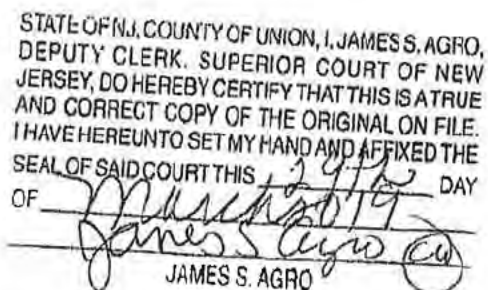 STATE OF N.J. COUNTY OF UNION, I, JAMES S. AGRO,
DEPUTY CLERK. SUPERIOR COURT OF NEW
JERSEY, DO HEREBY CERTIFY THAT THIS IS A TRUE
AND CORRECT COPY OF THE ORIGINAL ON FILE.
I HAVE HEREUNTO SET MY HAND AND AFFIXED THE
SEAL OF SAID COURT THIS 29th DAY
OF March 2019
James S Agro
JAMES S. AGRO